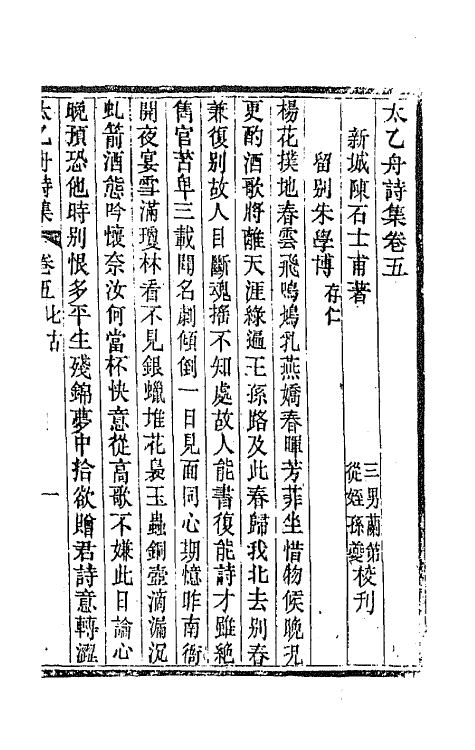 太乙舟詩集卷五
新城陳石士甫著
三男蘭第
從姪孫夔
校刊
留別朱學博存仁
楊花撲地春雲飛鳴鳩乳燕嬌春暉芳菲坐惜物候晚況
更酌酒歌將離天涯綠遍王孫路及此春歸我北去別春
兼復別故人目斷魂搖不知處故人能書復能詩才雖絕
儁官苦卑三載聞名劇傾倒一日見面同心期憶昨南衙
開夜宴雪滿瓊林看不見銀蠟堆花裊玉蟲銅壺滴漏沉
虬箭酒態吟懷奈汝何當杯快意從高歌不嫌此日論心
晚預恐他時別恨多平生殘錦夢中拾欲贈君詩意轉澀
太乙舟詩集
卷五七古
一